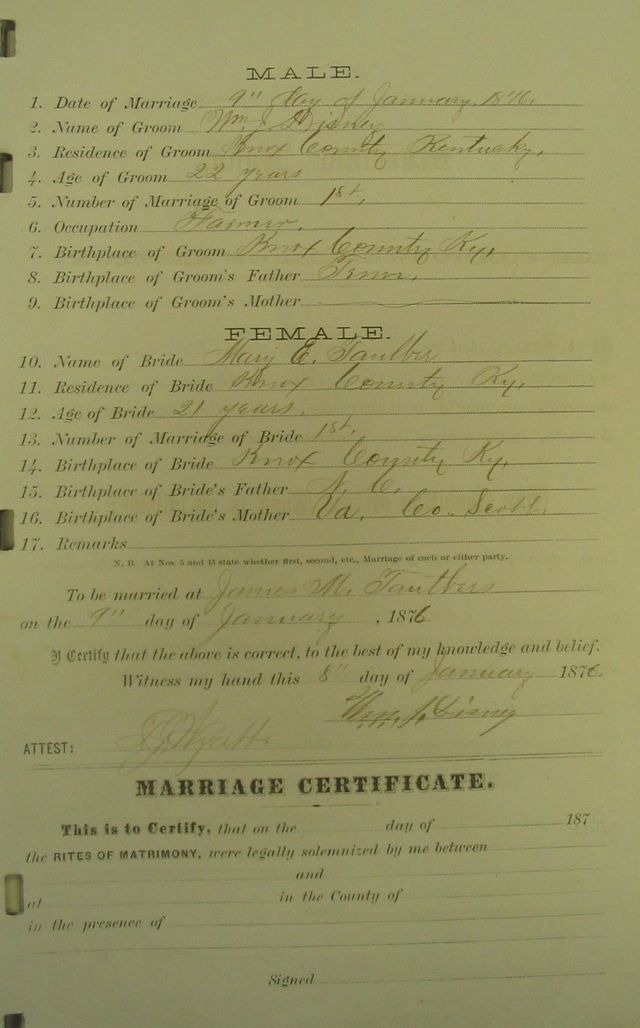 MALE.
1. Date of Marriage 9" day of January, 1876.
2. Name of Groom Wm. J. Disney
3. Residence of Groom Knox County Kentucky,
4. Age of Groom 22 years
5. Number of Marriage of Groom 1st,
6. Occupation Farmer,
7. Birthplace of Groom Knox County Ky,
8. Birthplace of Groom's Father Tenn,
9. Birthplace of Groom's Mother
FEMALE.
10. Name of Bride Mary E. Taulber
11. Residence of Bride Knox County Ky,
12. Age of Bride 21 years,
13. Number of Marriage of Bride 1st,
14. Birthplace of Bride Knox County Ky,
15. Birthplace of Bride's Father N. C.
16. Birthplace of Bride's Mother Va. Co. Scott
17. Remarks
N. B. At Nos. 5 and 13 state whether first, second, etc., Marriage of each or either party.
To be married at James M. Taulbers
on the 9" day of January, 1876
I Certify that the above is correct, to the best of my knowledge and belief.
Witness my hand this 8" day of January 1876
Wm. J. Disney
ATTEST: Wyatt
MARRIAGE CERTIFICATE.
This is to Certify, that on the day of 187
the RITES OF MATRIMONY, were legally solemnized by me between
and
at in the County of
in the presence of
Signed